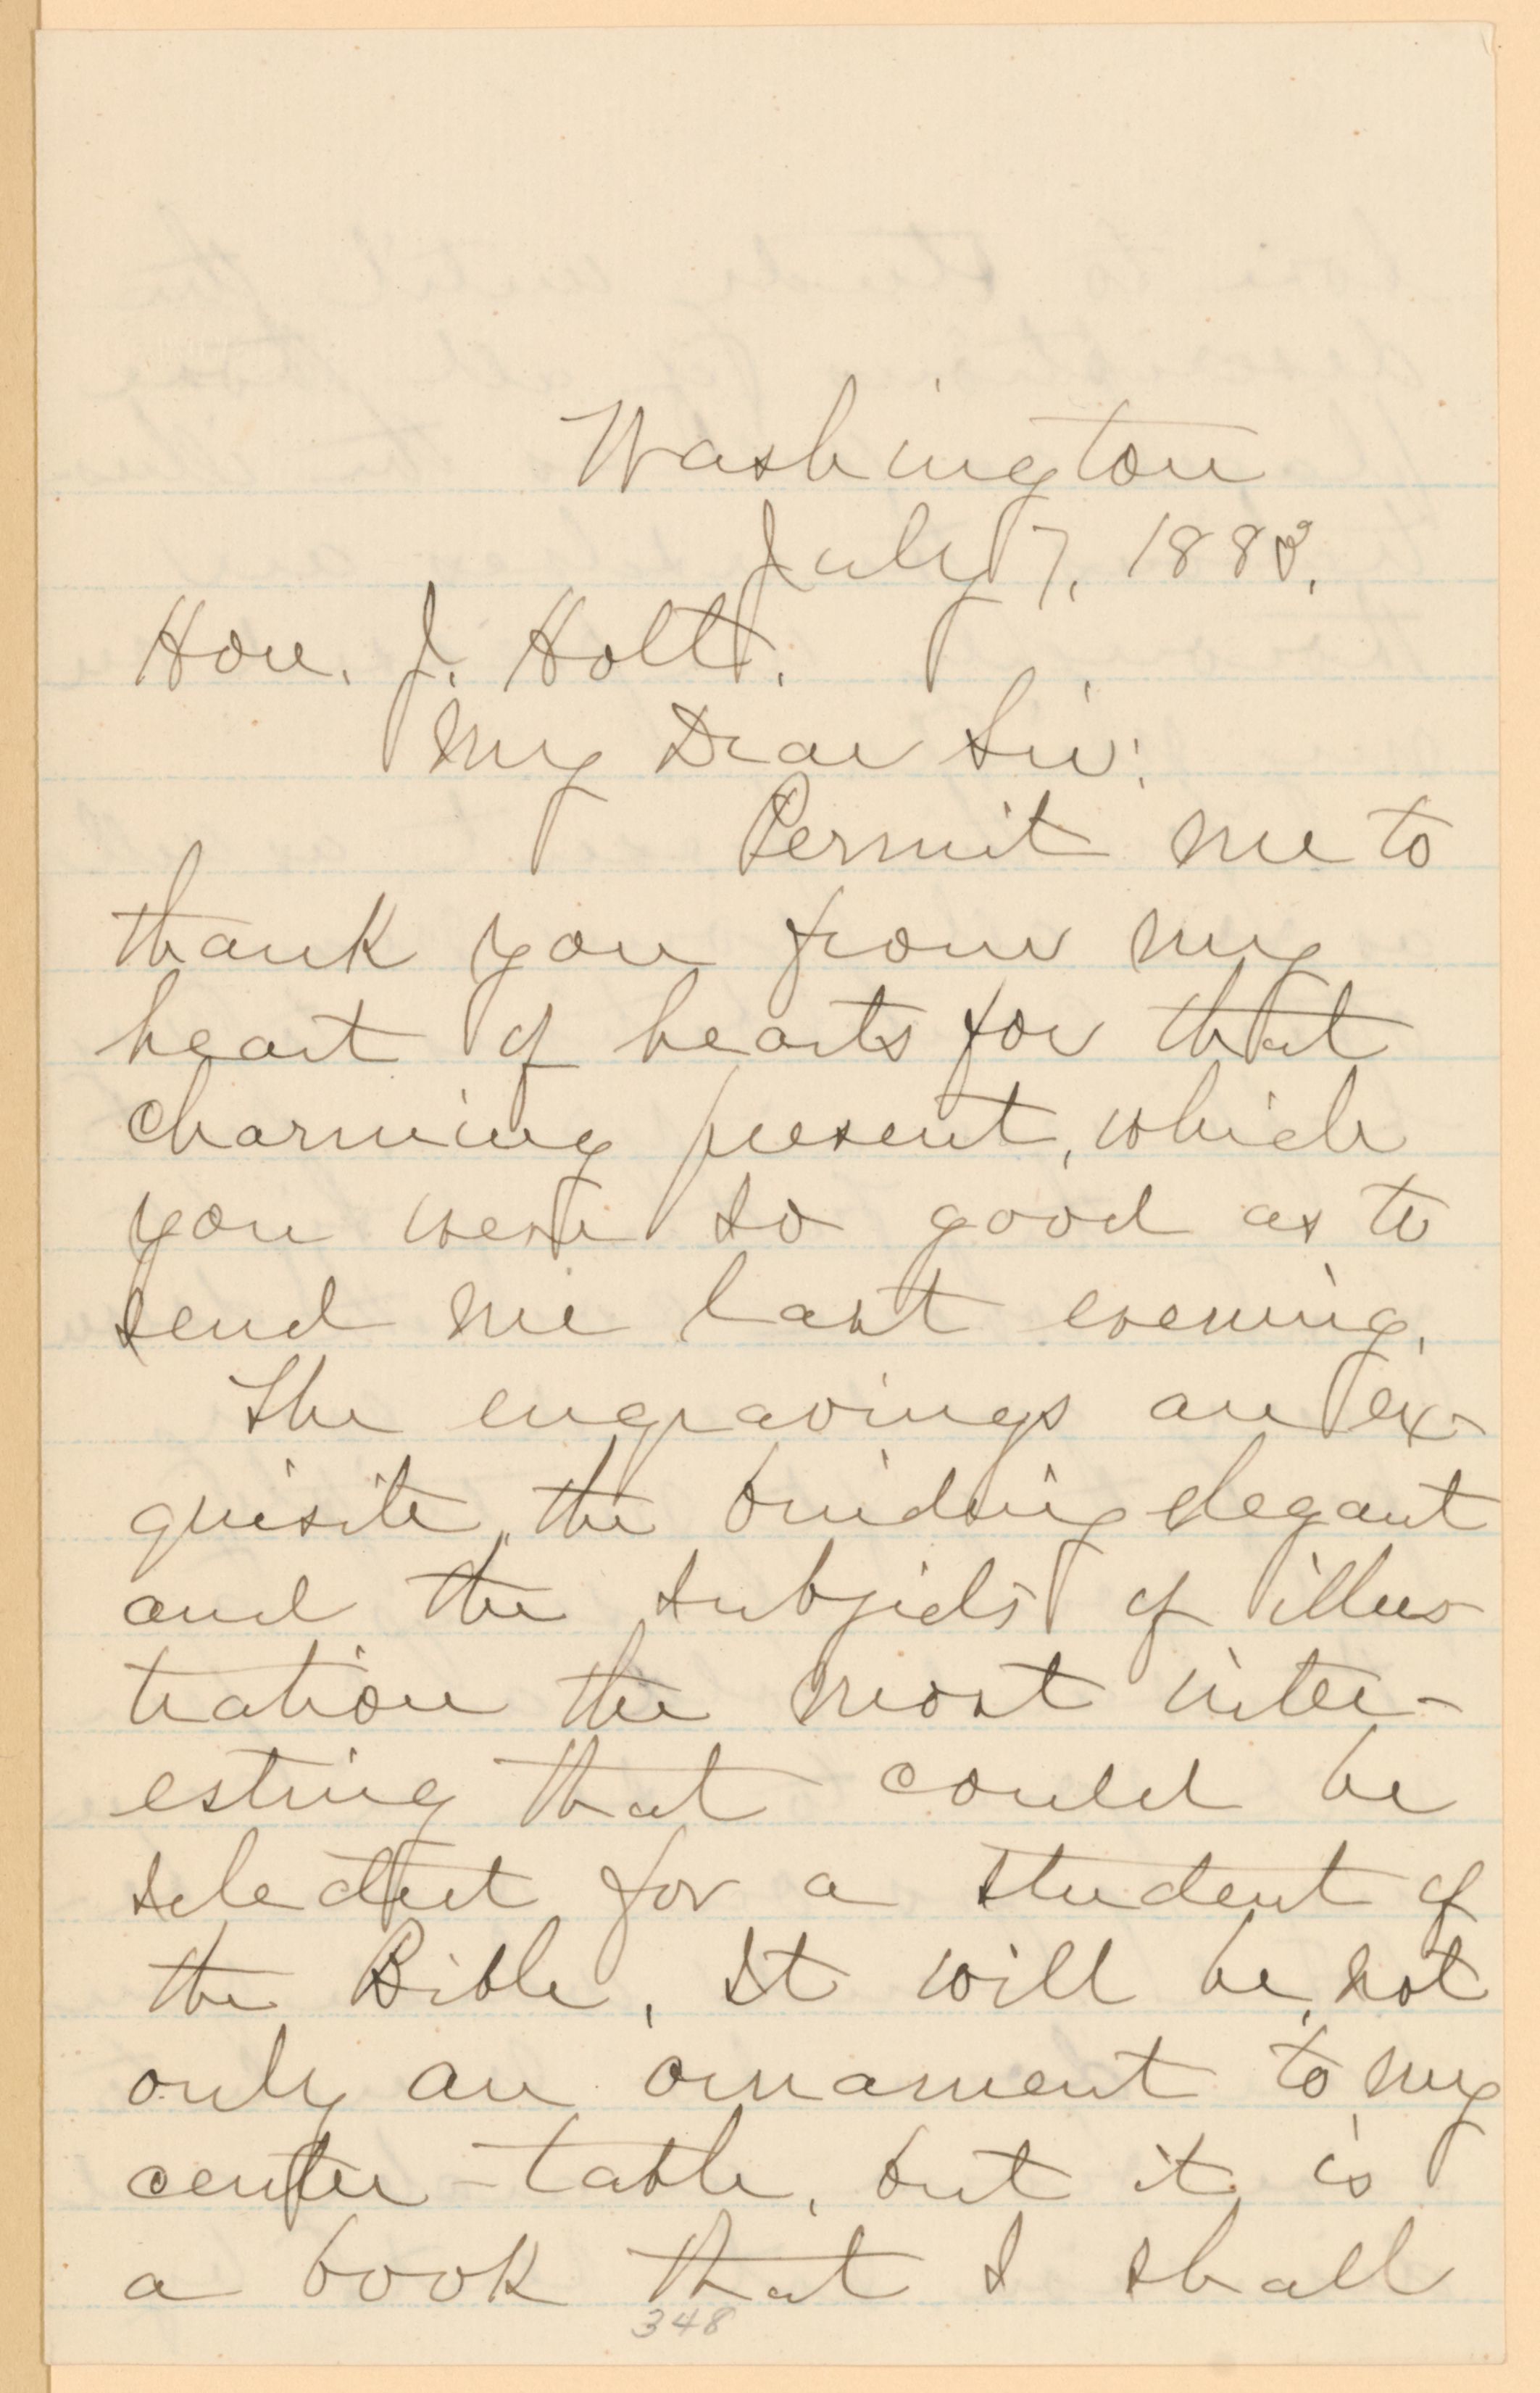 Washington
July 7, 1882.
Hon. J. Holt.
My Dear Sir:
Permit me to
thank you from my
heart of hearts for that
charming present, which
you were so good as to
send me last evening.
The engravings are ex-
quisite, the binding elegant
and the subjects of illus
tration the most inter-
esting that could be
selected for a student of
the Bible. It will be, not
only an ornament to my
center-table, but it is
a book that I shall
348